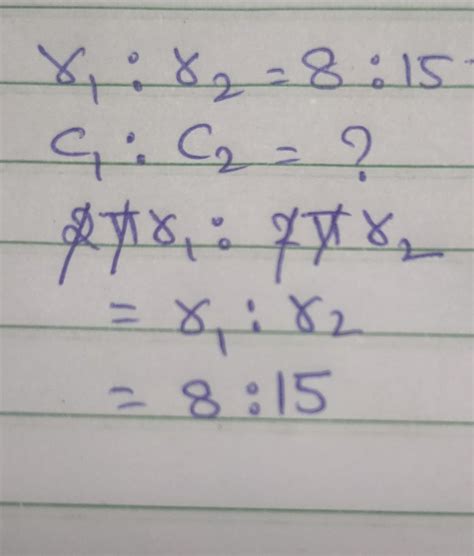 r₁ : r₂ = 8 : 15
C₁ : C₂ = ?
2πr₁ : 2πr₂
= r₁ : r₂
= 8 : 15